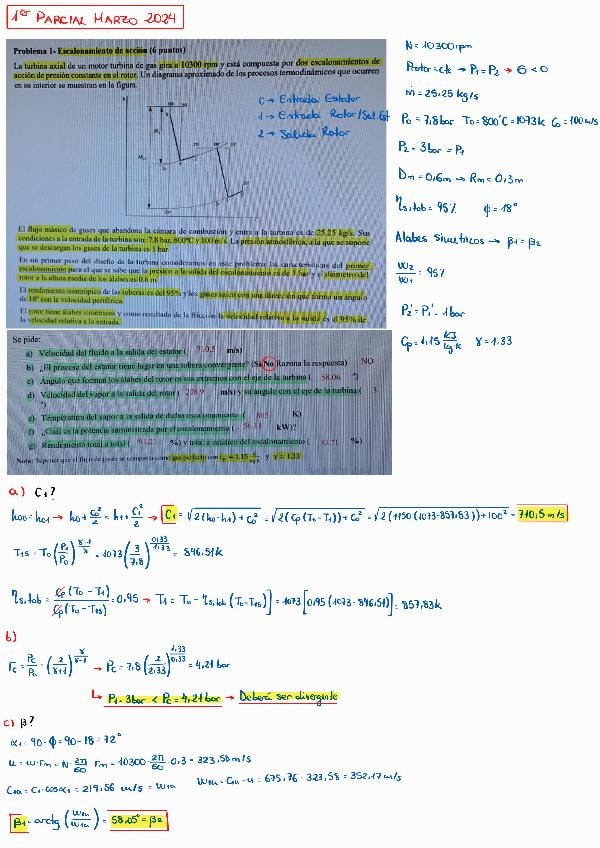 1er PARCIAL MARZO 2024
Problema 1- Escalonamiento de acción (6 puntos)
La turbina axial de un motor turbina de gas gira a 10300 rpm y está compuesta por dos escalonamientos de
acción de presión constante en el rotor. Un diagrama aproximado de los procesos termodinámicos que ocurren
en su interior se muestran en la figura.
0 → Entrada Estator
1 → Entrada Rotor/Sal. Est
2 → Salida Rotor
El flujo másico de gases que abandona la cámara de combustión y entra a la turbina es de 25.25 kg/s. Sus
condiciones a la entrada de la turbina son: 7.8 bar, 800°C y 100 m/s. La presión atmosférica, a la que se supone
que se descargan los gases de la turbina es 1 bar.
En un primer paso del diseño de la turbina consideramos en este problema las características del primer
escalonamiento para el que se sabe que la presión a la salida del escalonamiento es de 3 bar y el diámetro del
rotor a la altura media de los álabes es 0.6 m
El rendimiento isentrópico de las toberas es del 95% y los gases salen con una dirección que forma un ángulo
de 18° con la velocidad periférica.
El rotor tiene álabes simétricos y como resultado de la fricción la velocidad relativa a la salida es el 95% de
la velocidad relativa a la entrada.
N = 10300 rpm
Rotor = ctе → P1 = P2 → σ < 0
ṁ = 25,25 kg/s
P0 = 7,8 bar T0 = 800°C = 1073 K C0 = 100 m/s
P2 = 3 bar = P1
Dm = 0,6 m → Rm = 0,3 m
ηs,tob = 95% ϕ = 18°
Álabes simétricos → β1 = β2
W2/W1 = 95%
P2' = P1' = 1 bar
Cp = 1,15 KJ/kg K γ = 1,33
Se pide:
a) Velocidad del fluido a la salida del estator ( 710,5 m/s)
b) ¿El proceso del estator tiene lugar en una tobera convergente? (Si/No Razona la respuesta) NO
c) Ángulo que forman los álabes del rotor es sus extremos con el eje de la turbina ( 58.06 °)
d) Velocidad del vapor a la salida del rotor ( m/s) y su ángulo con el eje de la turbina ( 3
°)
e) Temperatura del vapor a la salida de dicho escalonamiento ( 865 K)
f) ¿Cuál es la potencia suministrada por el escalonamiento ( kW)?
g) Rendimiento total a total ( %) y total a estático del escalonamiento ( 83.71 %)
Nota: Suponer que el flujo de gases se comporta como gas perfecto con cp = 1.15 y γ = 1.33
a) C1?
h00 = h01 → h0 + C0²/2 = h1 + C1²/2 → C1 = √2(h0 - h1) + C0² = √2(Cp(T0 - T1)) + C0² = √2(1150(1073 - 857,83)) + 100² = 710,5 m/s
T1s = T0 (P1/P0)^(γ-1/γ) = 1073 (3/7,8)^(0,33/1,33) = 846,51 K
ηs,tob = Cp(T0 - T1)/Cp(T0 - T1s) = 0,95 → T1 = T0 - ηs,tob (T0 - T1s) = 1073 [0,95 (1073 - 846,51)] = 857,83 K
b)
rc = Pc/P0 = (2/γ+1)^(γ/γ-1) → Pc = 7,8 (2/2,33)^(1,33/0,33) = 4,21 bar
↳ P1 = 3 bar < Pc = 4,21 bar → Deberá ser divergente
c) β?
α1 = 90 - ϕ = 90 - 18 = 72°
u = ω·rm = N · 2π/60 · rm = 10300 · 2π/60 · 0,3 = 323,58 m/s
C1a = C1 · cosα1 = 219,56 m/s = W1a W1u = C1u - u = 675,76 - 323,58 = 352,17 m/s
β1 = arctg (W1u/W1a) = 58,05° = β2